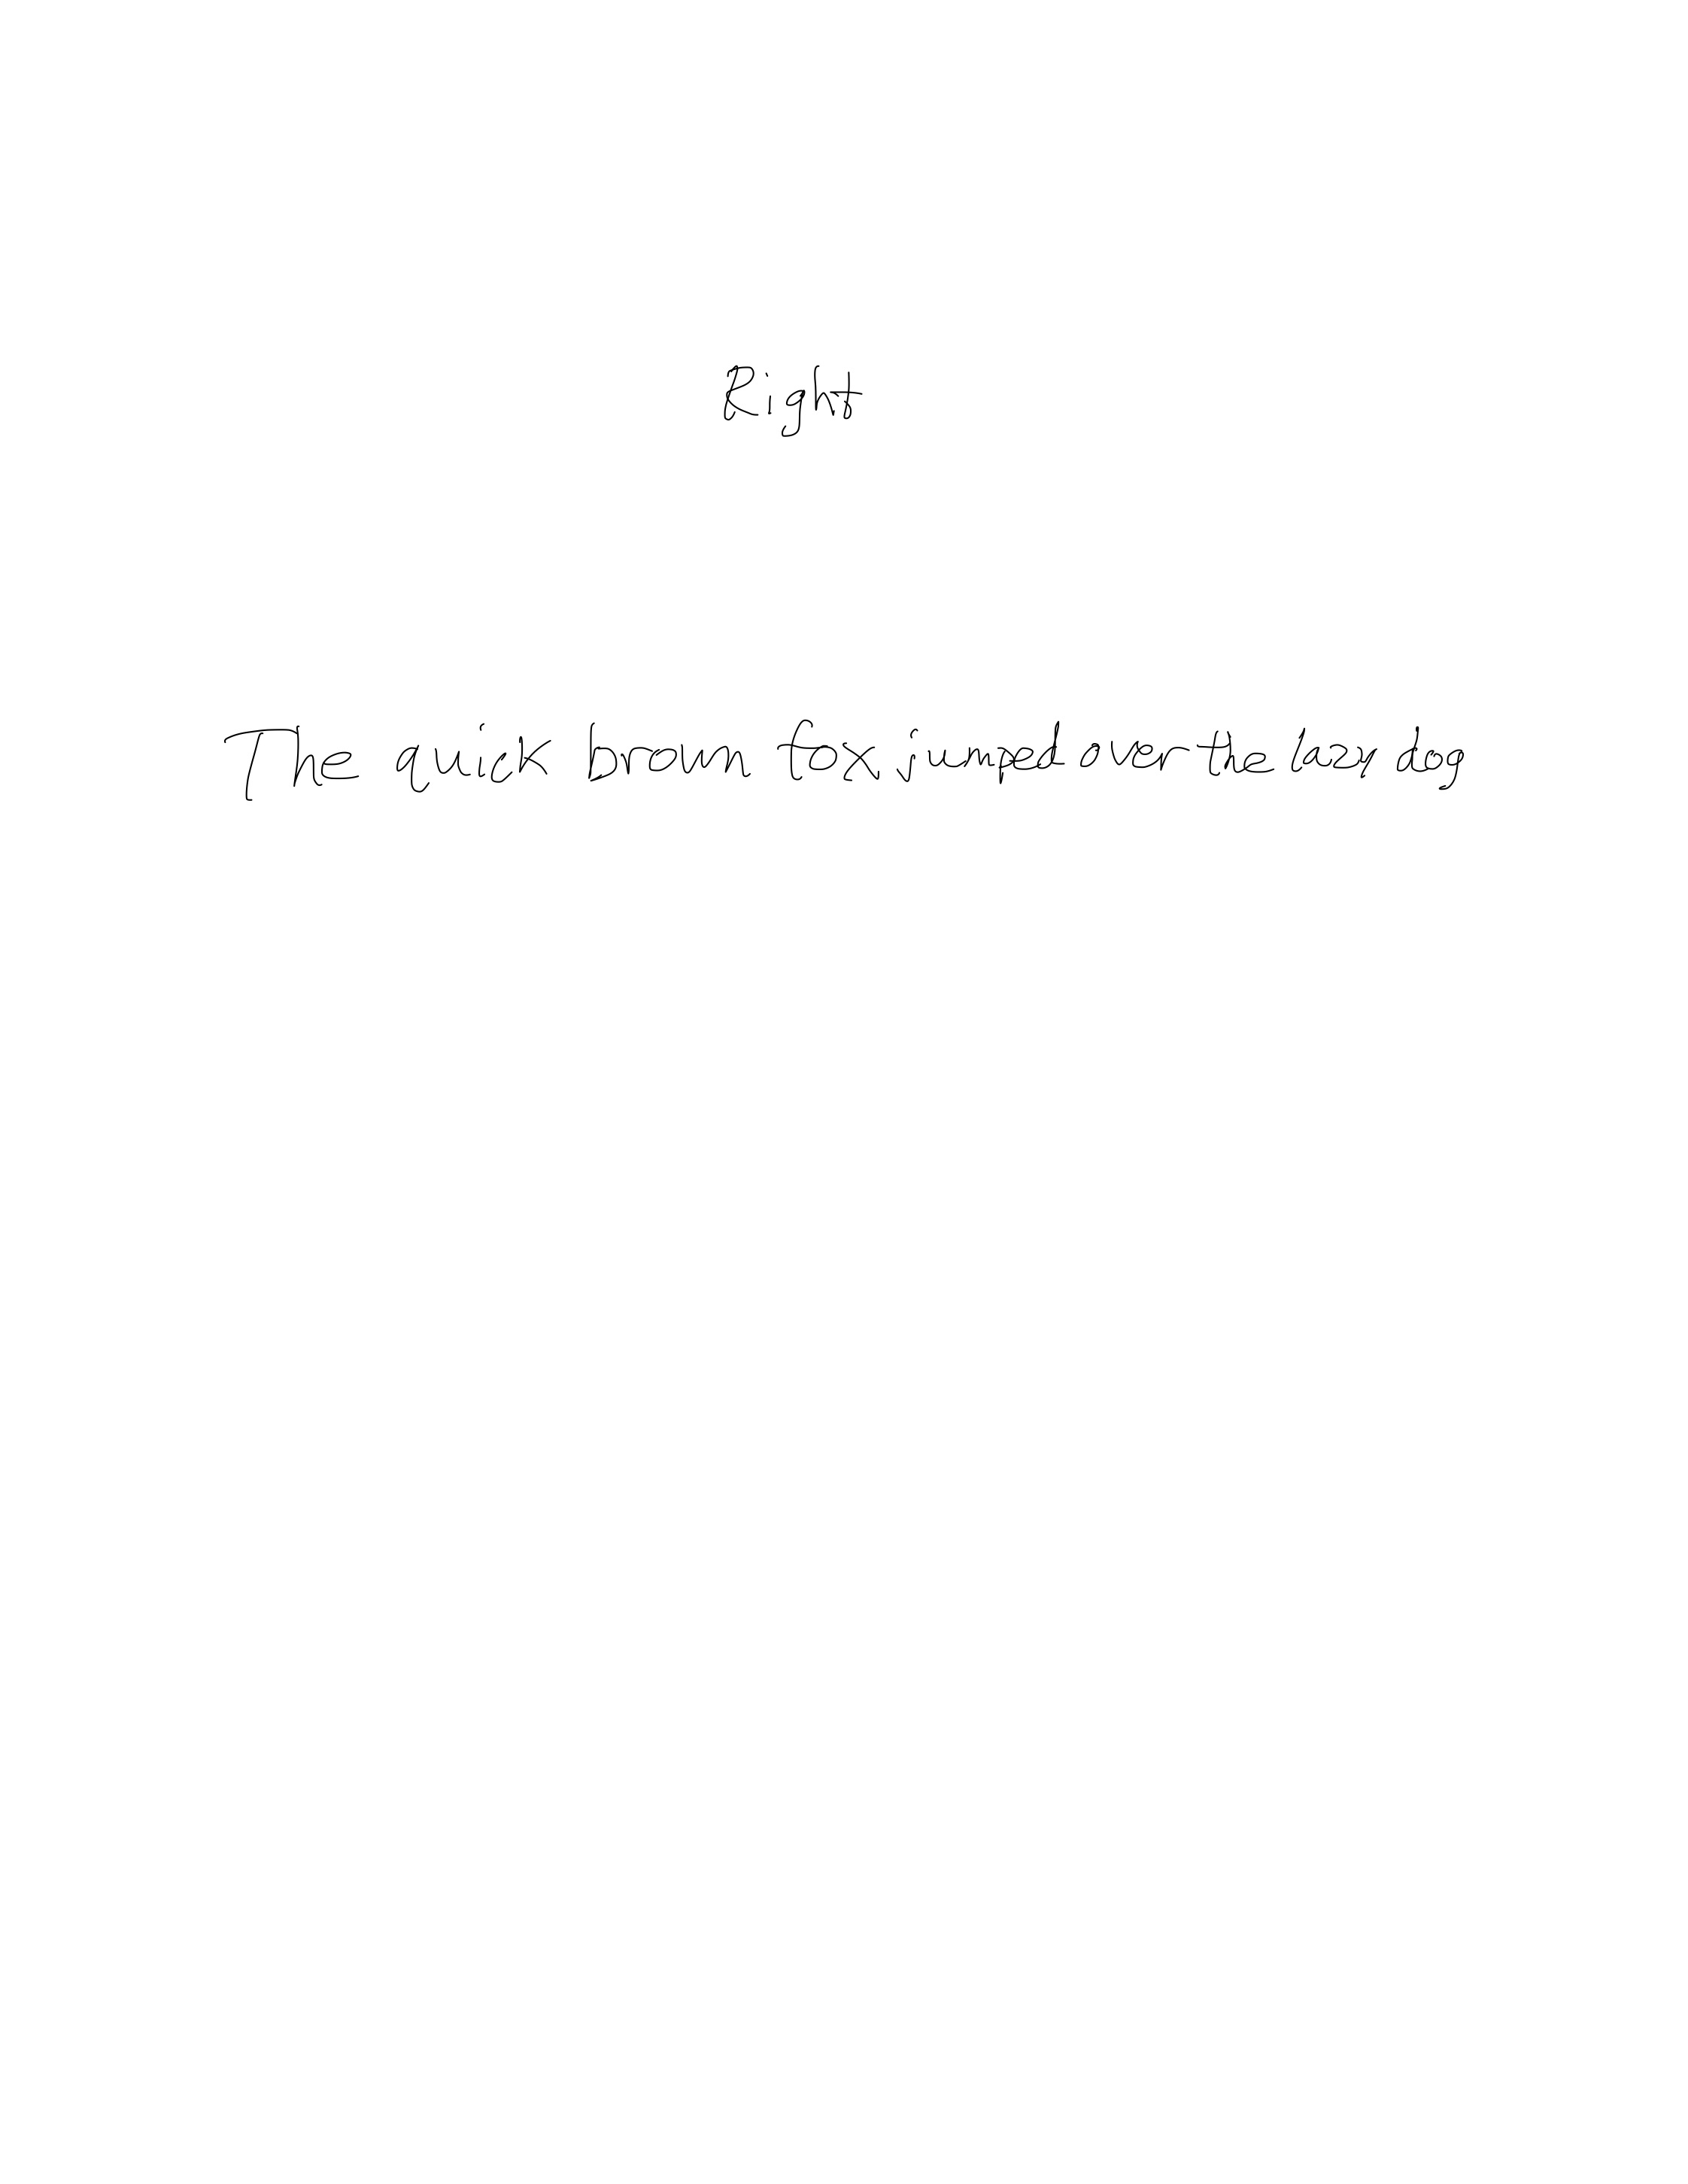 Right
The quick brown fox jumped over the lazy dog